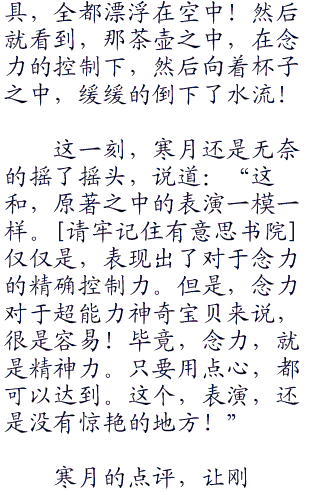 具，全都漂浮在空中！然后
就看到，那茶壶之中，在念
力的控制下，然后向着杯子
之中，缓缓的倒下了水流！
这一刻，寒月还是无奈
的摇了摇头，说道：“这
和，原著之中的表演一模一
样。[请牢记住有意思书院]
仅仅是，表现出了对于念力
的精确控制力。但是，念力
对于超能力神奇宝贝来说，
很是容易！毕竟，念力，就
是精神力。只要用点心，都
可以达到。这个，表演，还
是没有惊艳的地方！”
寒月的点评，让刚